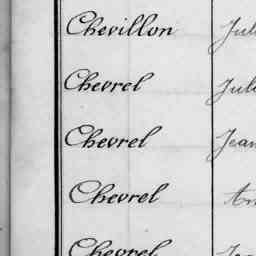 Chevillon
Chevrel
Chevrel Jean
Chevrel
Chevrel